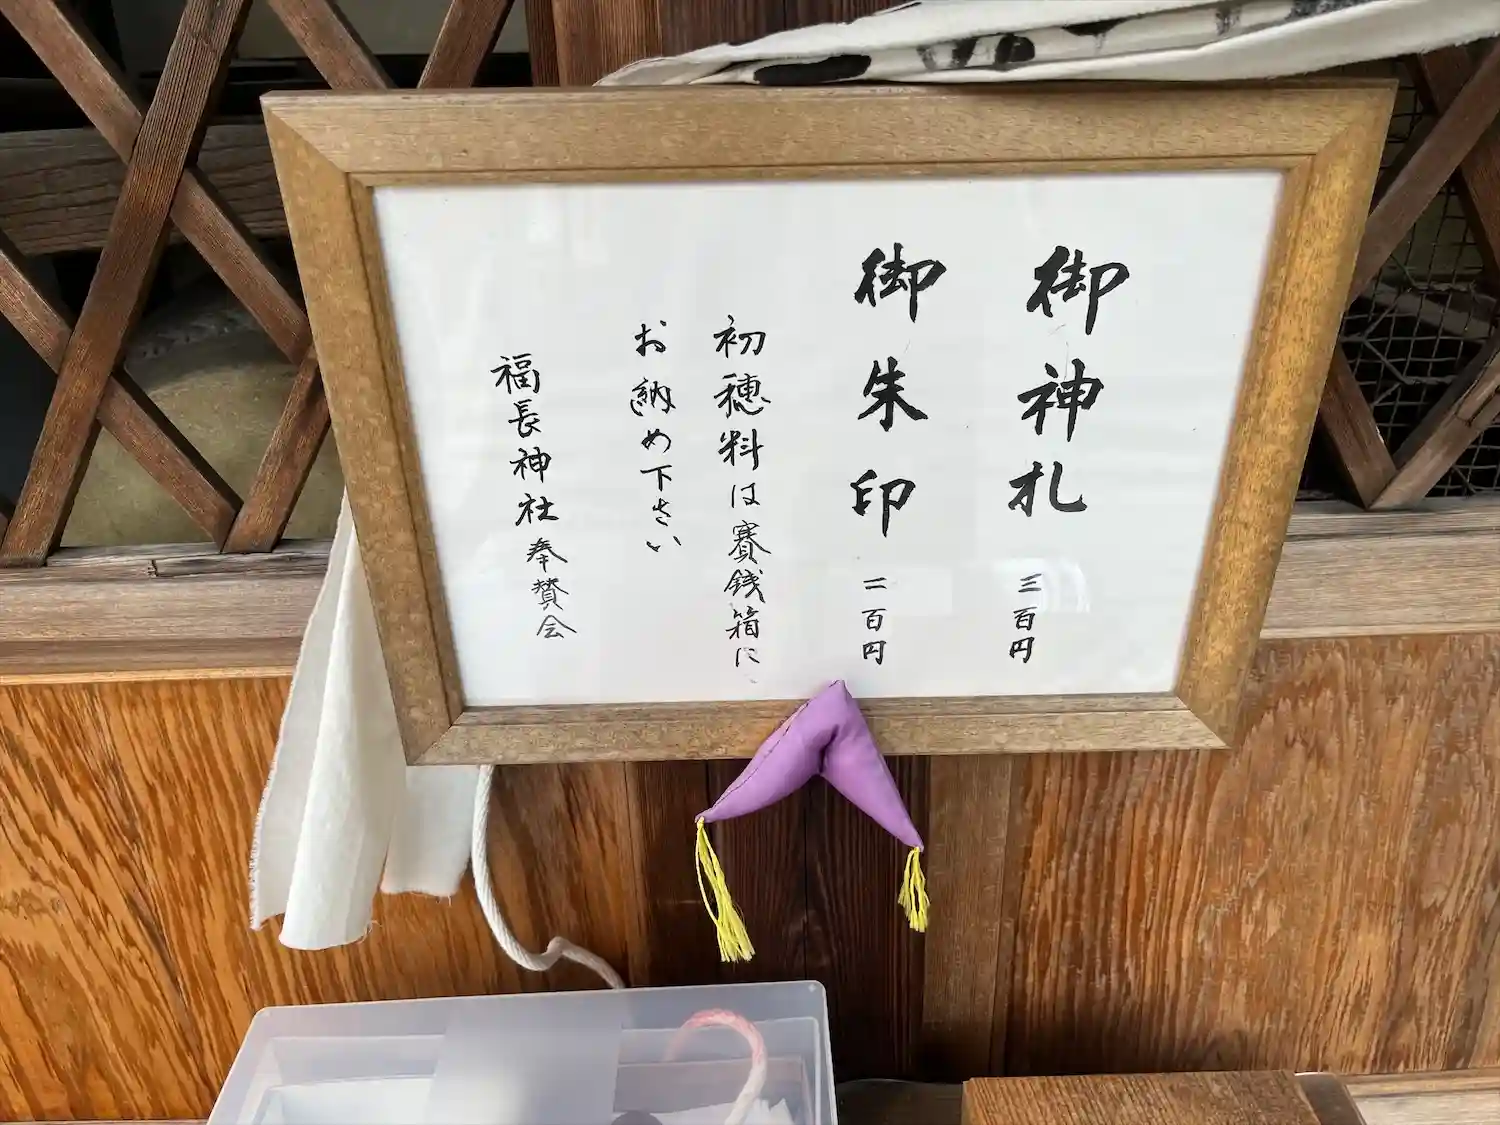 御神札 三百円
御朱印 二百円
初穂料は賽銭箱に
お納め下さい
福長神社奉賛会